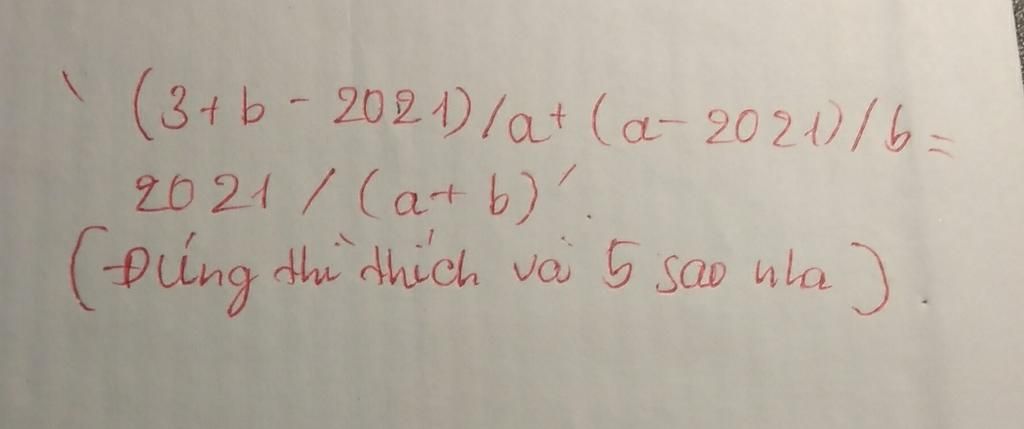 ` (3+b - 2021)/a+ (a- 2021)/b =
2021 / (a+ b)´.
(Đúng thì thích và 5 sao nha).